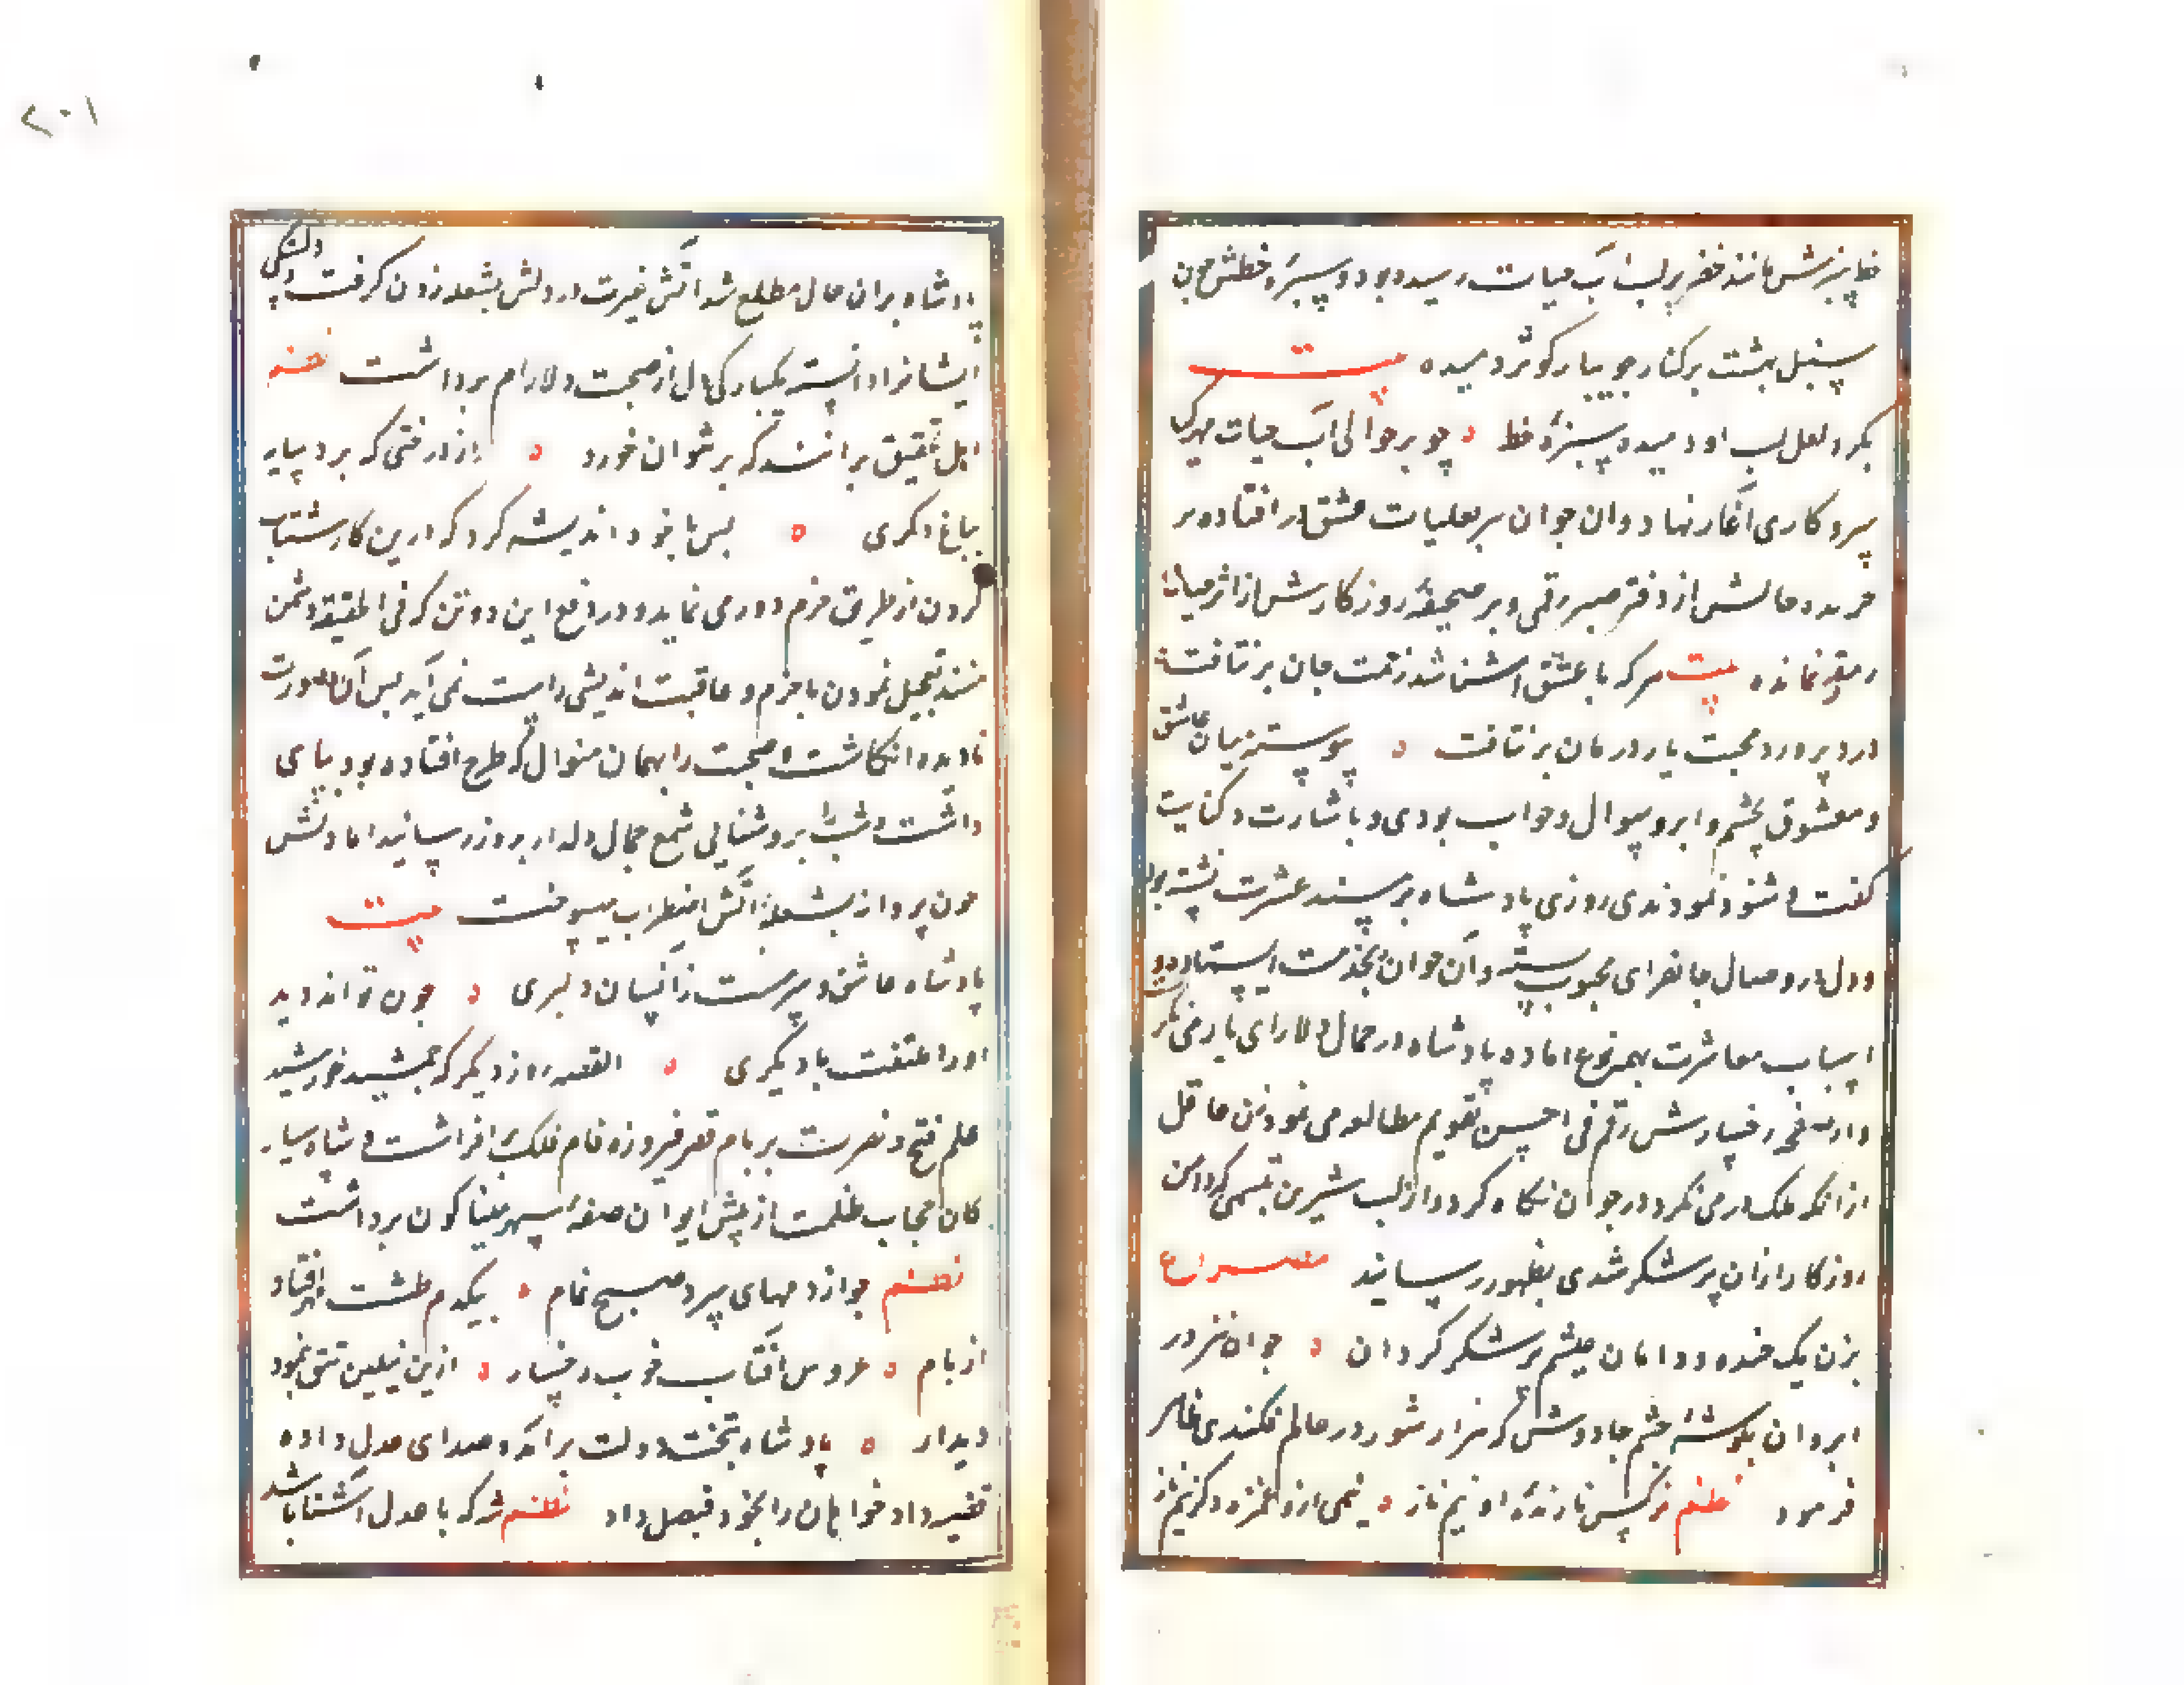 خضر سبزش مانند خضر بر لب آب حیات رسیده بود و سبزهٔ خطش چون
سنبل بهشت بر کنار جویبار کوثر دمیده بیت
بگرد لعل لب او دمیده سبزهٔ خط چو بر حوالی آب حیات مهرگیا
سرو کاری آغاز نهاد و ان جوان سر بعلیات عشق در افتاده بر
جریده حالش از دفتر صبر رقمی و بر صحیفهٔ روزکارش از اثر حیات
رمقی نمانده بیت هر که با عشق آشنا شد زحمت جان بر نتافت
درد پرورد محبت یار درمان بر نتافت پیوسته میان عاشق
و معشوق بچشم و ابرو سوال و جواب بودی و باشارت و کنایت
کفت و شنود نمودندی روزی پادشاه بر مسند عشرت نشسته بود
و دل در وصال جانفزای محبوب بسته و آن جوان بخدمت ایستاده بود
اسباب معاشرت بهر نوع اماده پادشاه در جمال دلارای یار می نکر
و از صفحهٔ رخسارش رقم فی احسن تقویم مطالعه می نمود زن غافل
از آنکه ملک در می نکرد در جوان نکاه کرد و از لب شیرین تبسمی که دامن
روزکار ازان پر شکر شدی بظهور رسانید مصراع
بزن یک خنده و دامان عیشم پر شکر گردان جوان نیز در
ابروان بکوشهٔ چشم جادووش که هزار شور در عالم فکندی ظاهر
فرمود نظم نرکس نازندهٔ او نیم ناز نیمی ازو غمزه و کر نیم ناز
پادشاه بران حال مطلع شد آتش غیرت در دلش بشعله زدن کرفت و دلتنکی
ایشانرا دانسته یکبارکی دل از صحبت دلارام برداشت نظم
اهل تحقیق برانند که بر نتوان خورد از درختی که برد سایه
بباغ دکری پس با خود اندیشه کرد که درین کار شتاب
کردن از طریق حزم دوری نماید و در دفع این دو تن که فی الحقیقة دشمن
منند تعجیل نمودن با حزم و عاقبت اندیشی راست نمی آید پس آن صورت
نادیده انکاشت و صحبت را بهمان منوال که طرح افتاده بود بپای
داشت و شب را بروشنایی شمع جمال دلدار بروز رسانید اما دلش
چون پروانه بشعلهٔ آتش اضطراب میسوخت بیت
پادشاه عاشق و سرمست زآنسان دلبری چون تواند دید
اورا ملتفت با دیکری القصه روز دیکر که جمشید خورشید
علم فتح و نصرت بر بام قصر فیروزه فام فلک بر افراشت و شاه سیار
کان حجاب ظلمت از پیش ایوان صفهٔ سپهر میناکون برداشت
نظم چو از دمهای سرد صبح فام بیکدم طشت زر افتاد
از بام عروس آفتاب خوب رخسار ازین نیلین تتق نمود
دیدار پادشاه بتخت دولت برآمد و صدای عدل داده
قضیه داد خواهان را بخود فیصل داد نظم هر که با عدل آشنا باشد
۲۰۱